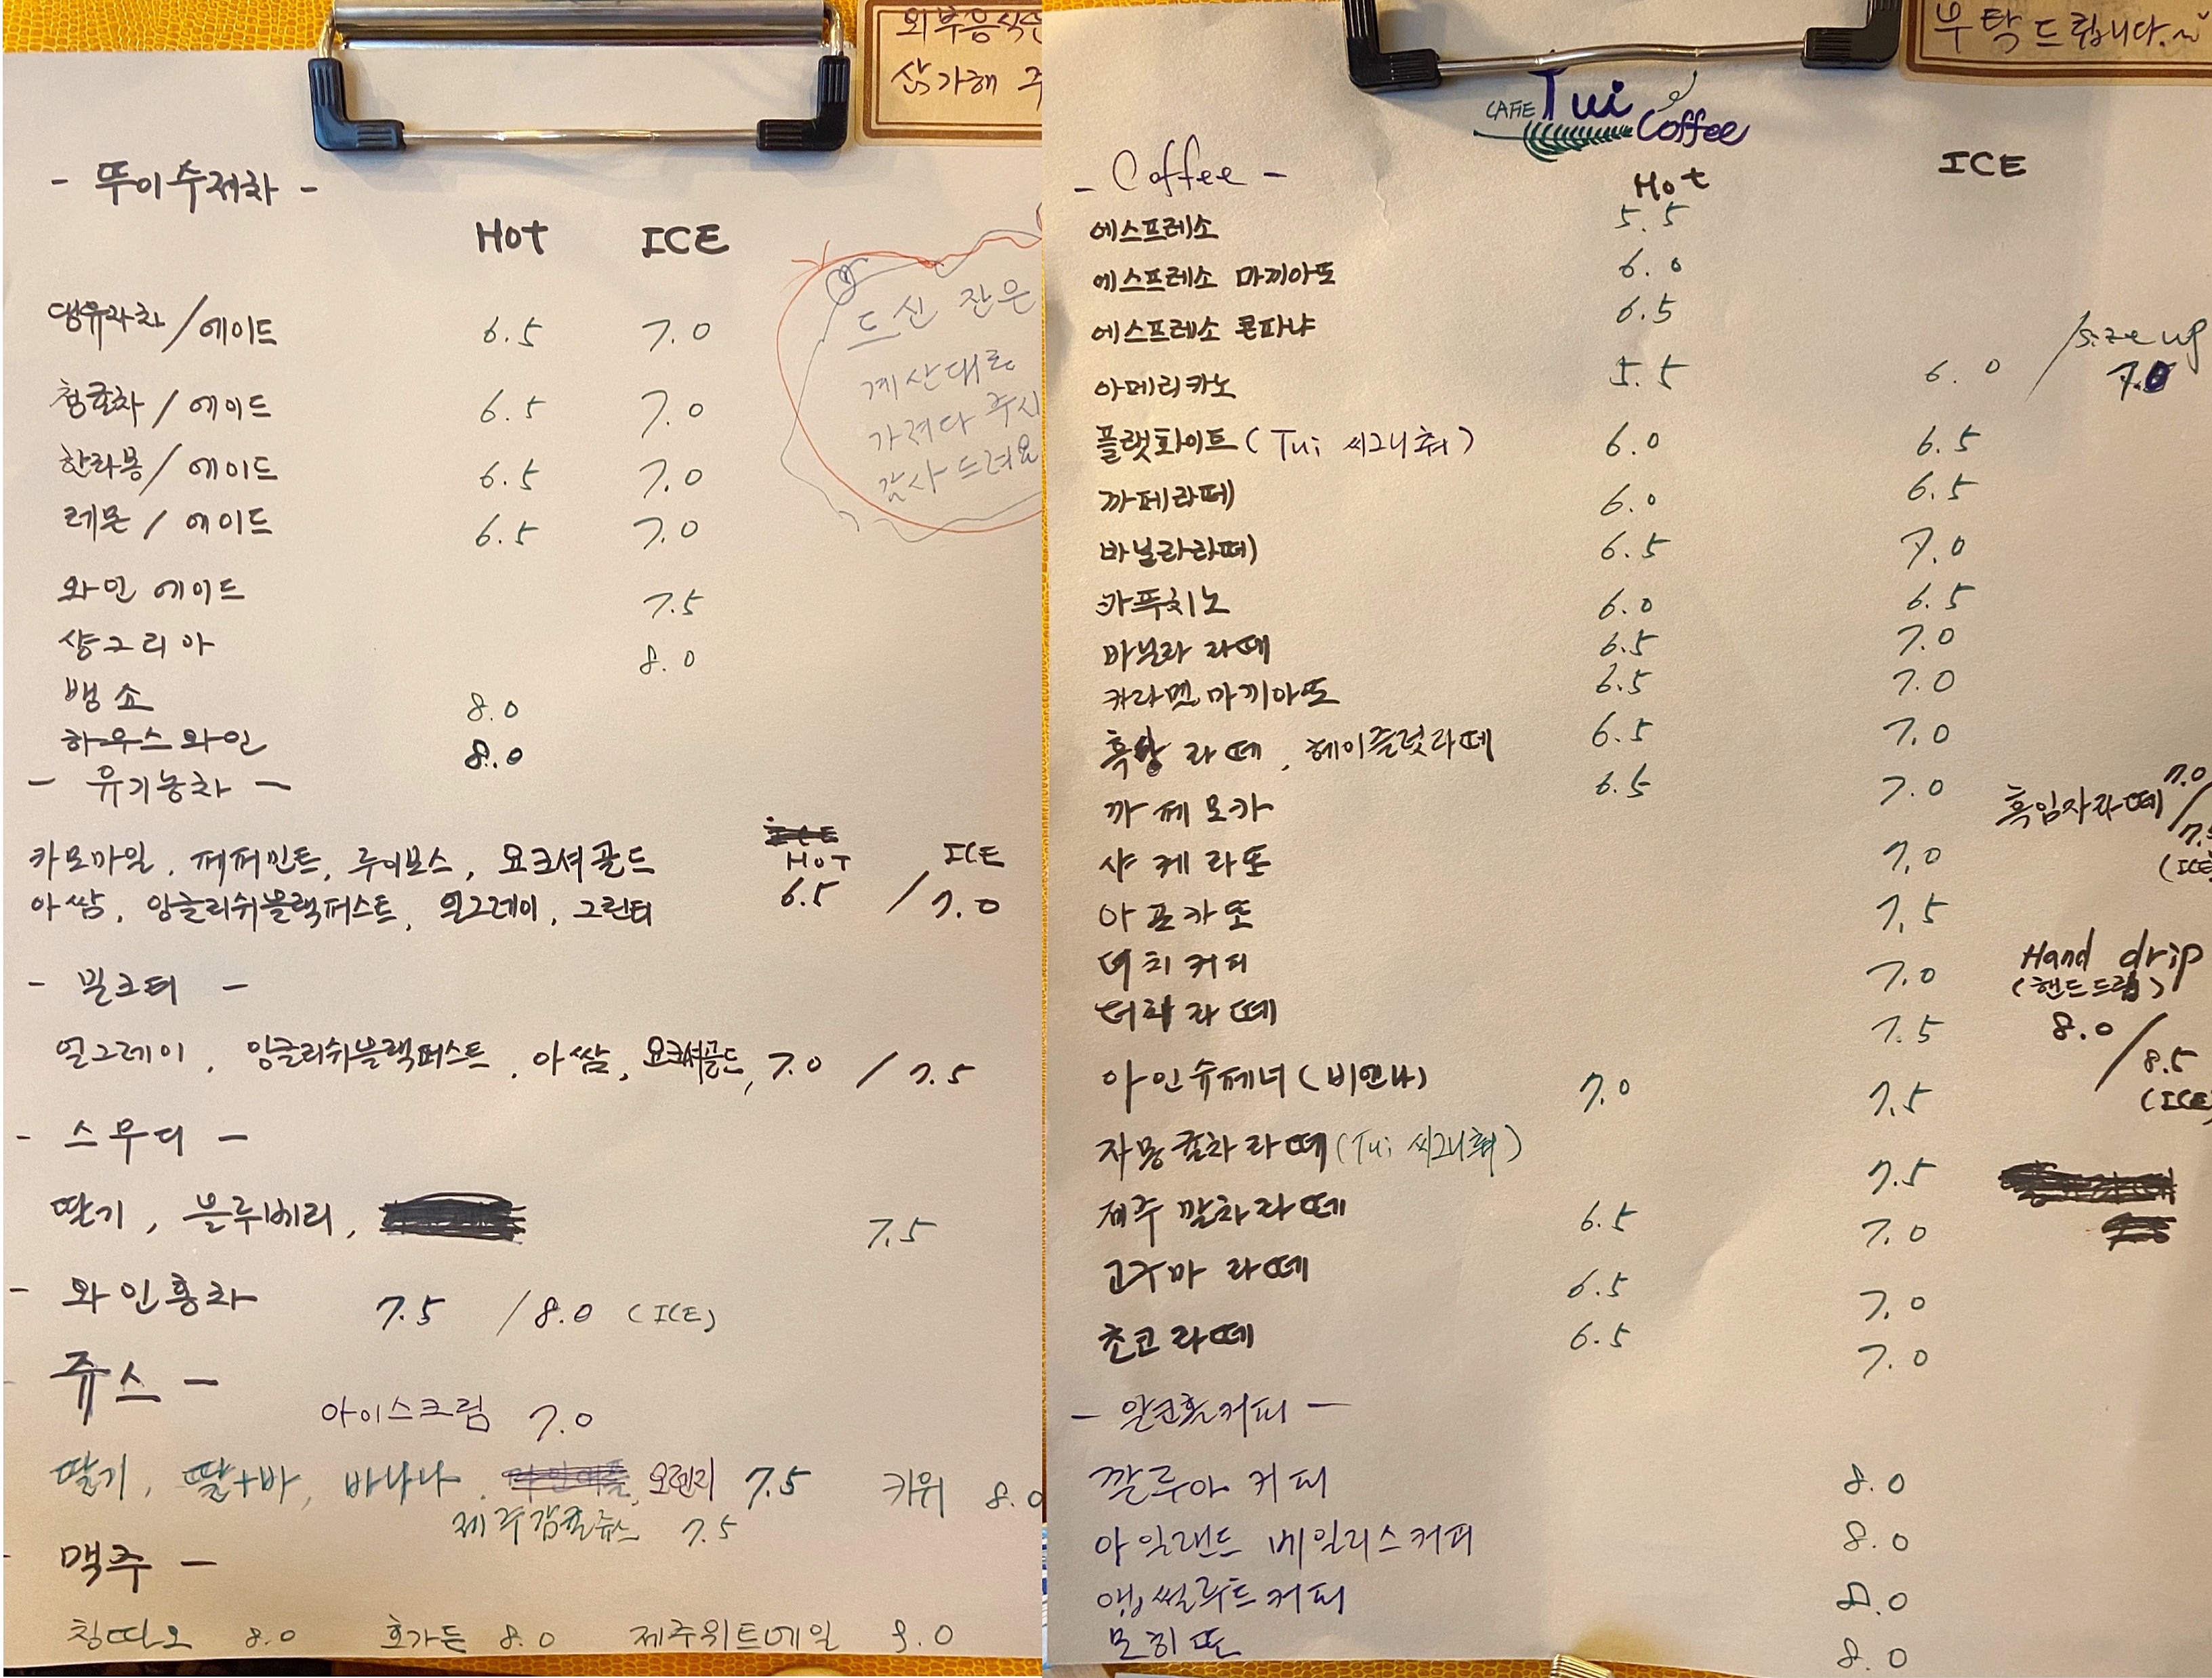 외부음식은
삼가해 주
- 뚜이수제차 -
Hot ICE
댕유자차 / 에이드 6.5 7.0
청귤차 / 에이드 6.5 7.0
한라봉 / 에이드 6.5 7.0
레몬 / 에이드 6.5 7.0
와인 에이드 7.5
샹그리아 8.0
뱅쇼 8.0
하우스와인 8.0
드신 잔은
계산대로
가져다 주시
감사드려요
- 유기농차 -
HOT ICE
카모마일, 페퍼민트, 루이보스, 요크셔골드
아쌈, 잉글리쉬블랙퍼스트, 얼그레이, 그린티 6.5 / 7.0
- 밀크티 -
얼그레이, 잉글리쉬블랙퍼스트, 아쌈, 요크셔골드, 7.0 / 7.5
- 스무디 -
딸기, 블루베리, 7.5
- 와인홍차 7.5 / 8.0 (ICE)
- 쥬스 -
아이스크림 7.0
딸기, 딸+바, 바나나, 오렌지 7.5 키위 8.0
제주감귤쥬스 7.5
- 맥주 -
칭따오 8.0 호가든 8.0 제주위트에일 9.0
부탁드립니다.~
CAFE Tui Coffee
- Coffee - Hot ICE
에스프레소 5.5
에스프레소 마끼아또 6.0
에스프레소 콘파냐 6.5
아메리카노 5.5 6.0 / size up 7.0
플랫화이트 (Tui 씨그니춰) 6.0 6.5
까페라떼 6.0 6.5
바닐라라떼 6.5 7.0
카푸치노 6.0 6.5
바닐라 라떼 6.5 7.0
카라멜 마끼아또 6.5 7.0
흑당 라떼, 헤이즐넛라떼 6.5 7.0
까페모카 6.5 7.0
흑임자라떼 7.0 /
(ICE)
샤케라또 7.0
아포카또 7.5
더치커피 7.0
더치라떼 7.5
Hand drip
(핸드드립)
8.0 / 8.5
(ICE)
아인슈페너 (비엔나) 7.0 7.5
자몽귤차라떼 (Tui 씨그니춰) 7.5
제주 말차라떼 6.5 7.0
고구마 라떼 6.5 7.0
초코라떼 6.5 7.0
- 알코홀커피 -
깔루아 커피 8.0
아일랜드 베일리스커피 8.0
앱쏠루트커피 8.0
모히또 8.0